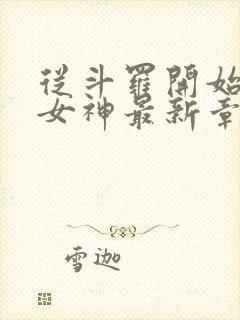 從斗羅開始
女神最新章
雪迦